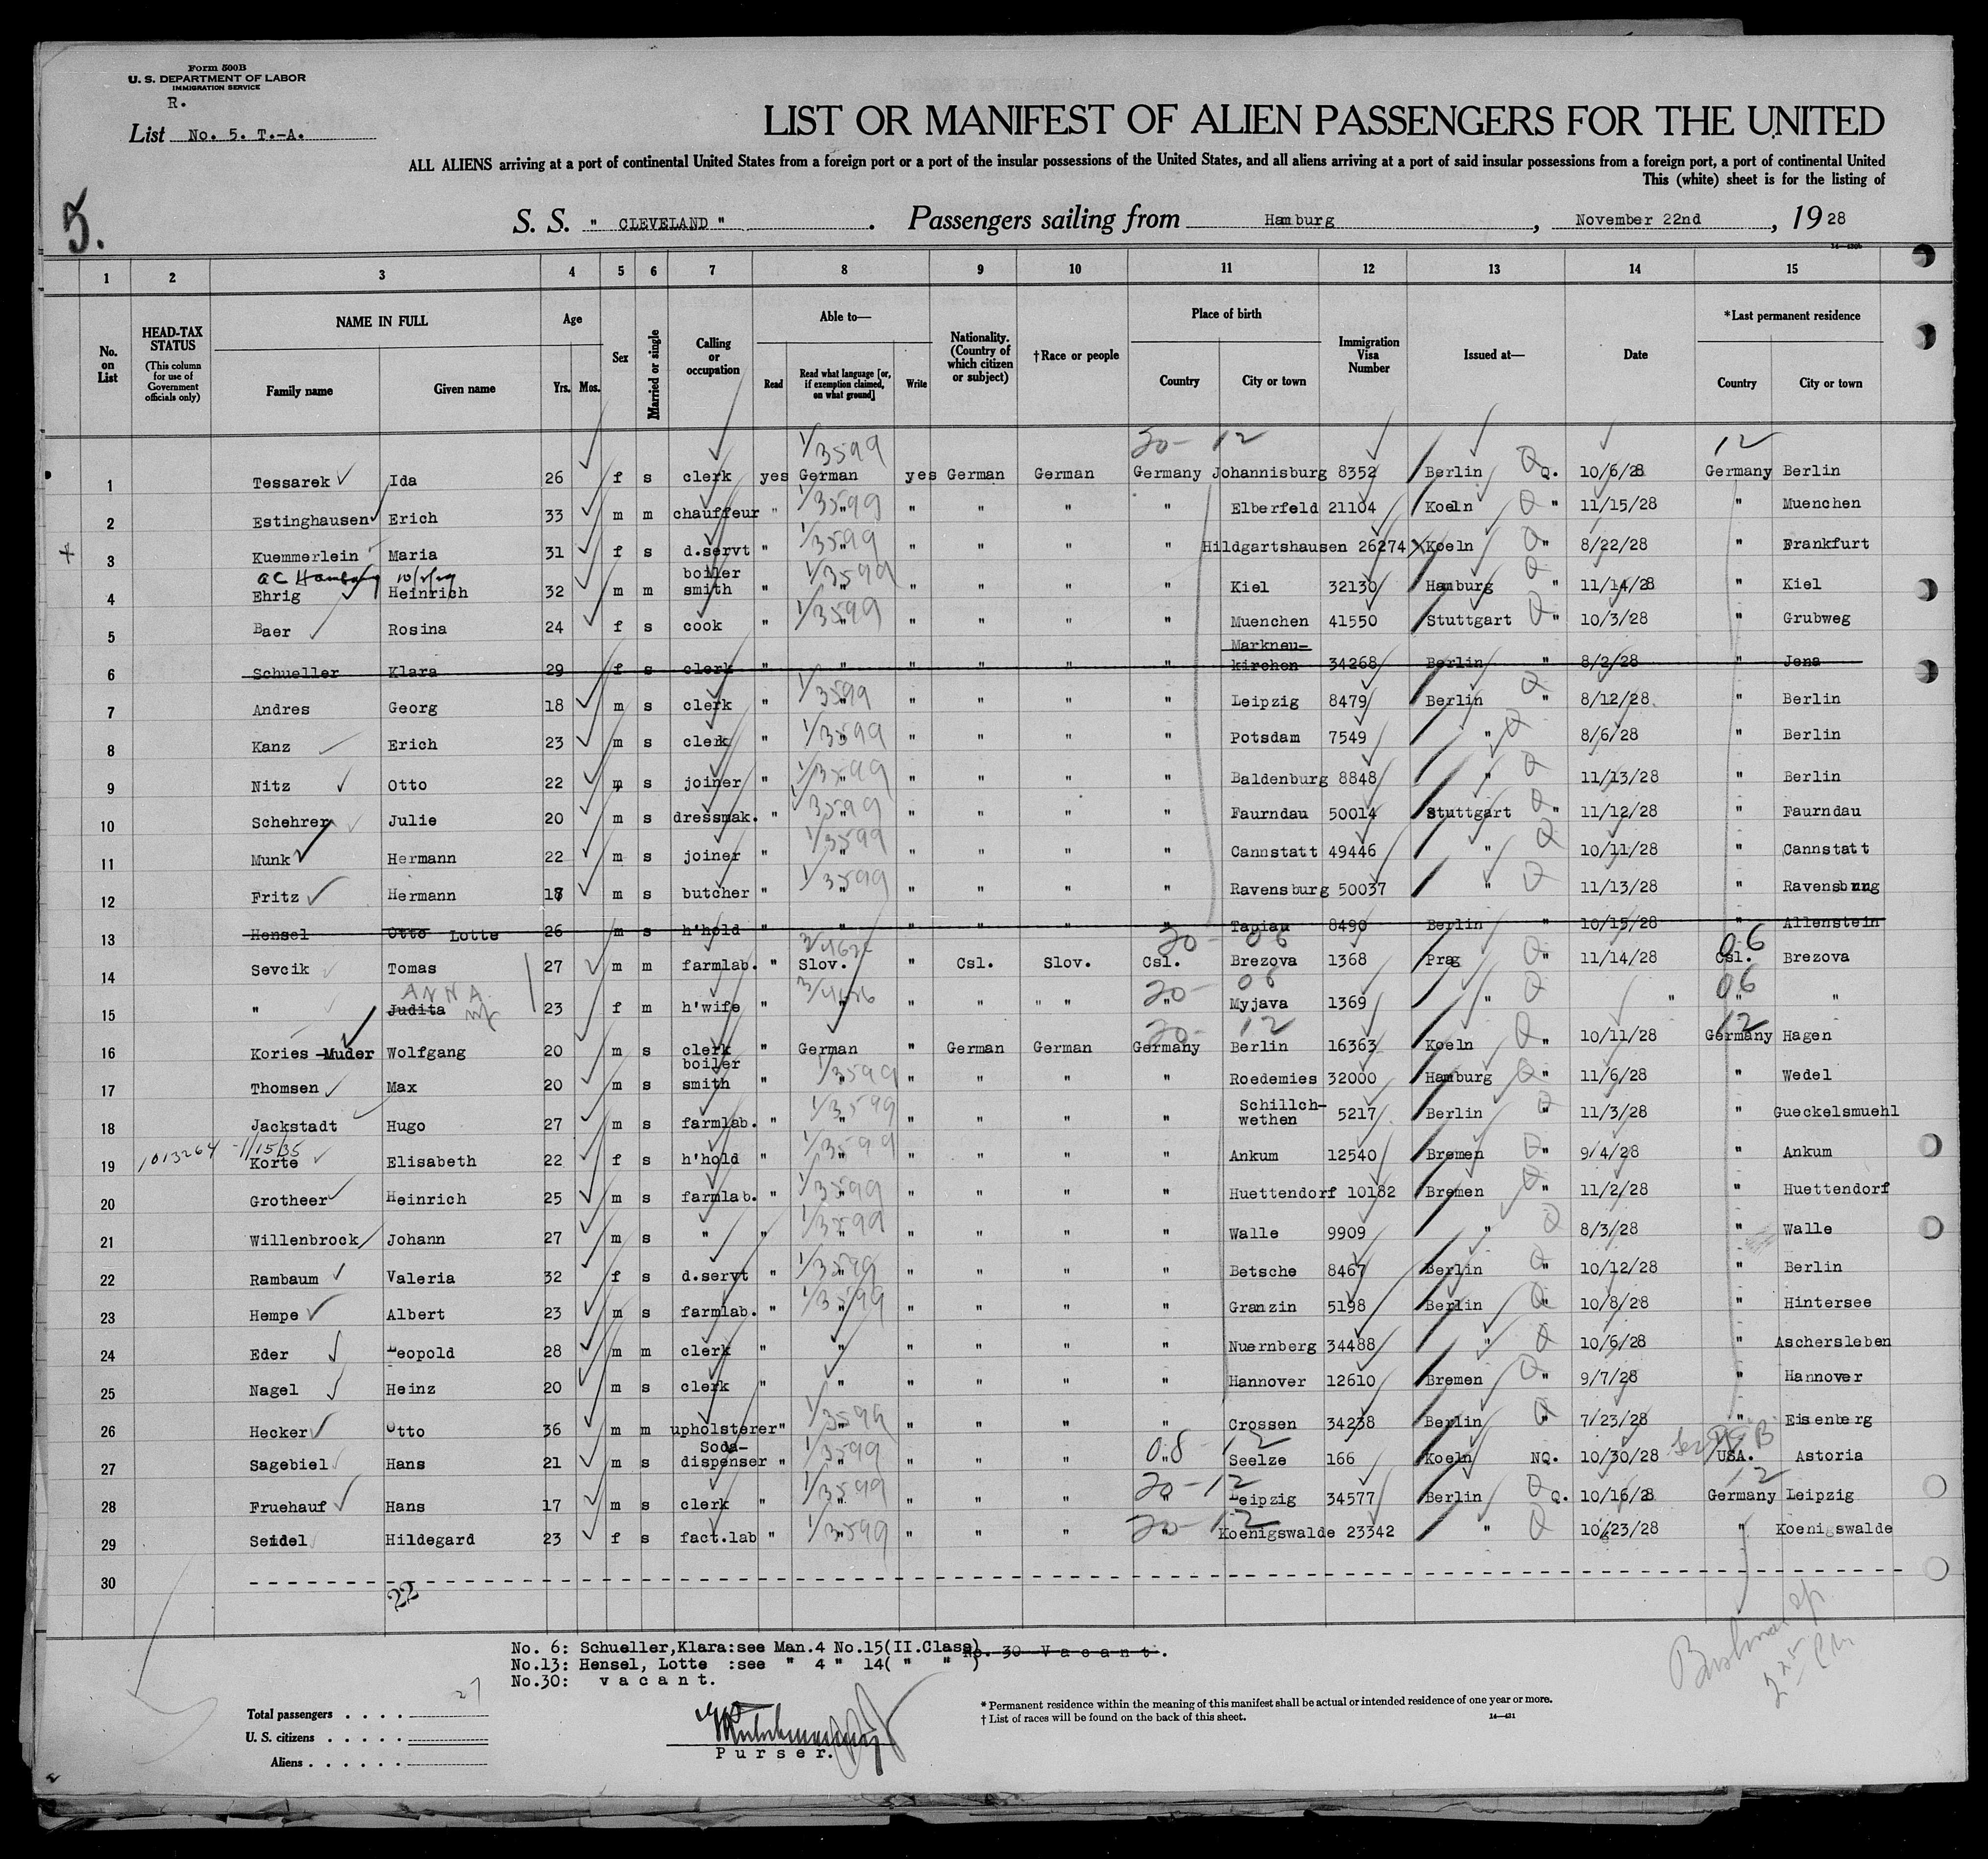 Form 500B
U. S. DEPARTMENT OF LABOR
IMMIGRATION SERVICE
R.
List No. 5. T.-A.
LIST OR MANIFEST OF ALIEN PASSENGERS FOR THE UNITED
ALL ALIENS arriving at a port of continental United States from a foreign port or a port of the insular possessions of the United States, and all aliens arriving at a port of said insular possessions from a foreign port, a port of continental United
This (white) sheet is for the listing of
5.
S. S. " CLEVELAND " . Passengers sailing from Hamburg , November 22nd , 1928
1 2 3 4 5 6 7 8 9 10 11 12 13 14 15
No. on List
HEAD-TAX STATUS (This column for use of Government officials only)
NAME IN FULL Family name Given name
Age Yrs. Mos.
Sex
Married or single
Calling or occupation
Able to— Read Read what language [or, if exemption claimed, on what ground] Write
Nationality. (Country of which citizen or subject)
†Race or people
Place of birth Country City or town
Immigration Visa Number
Issued at—
Date
*Last permanent residence Country City or town
1/3599 20- 12 12
1 Tessarek Ida 26 f s clerk yes German yes German German Germany Johannisburg 8352 Berlin Q. 10/6/28 Germany Berlin
2 Estinghausen Erich 33 m m chauffeur " 1/3599 " " " " " Elberfeld 21104 Koeln " 11/15/28 " Muenchen
3 Kuemmerlein Maria 31 f s d.servt " 1/3599 " " " " " Hildgartshausen 26274 Koeln " 8/22/28 " Frankfurt
AC Hamburg
4 Ehrig Heinrich 32 m m boiler smith " 1/3599 " " " " " Kiel 32130 Hamburg " 11/14/28 " Kiel
5 Baer Rosina 24 f s cook " 1/3599 " " " " " Muenchen 41550 Stuttgart " 10/3/28 " Grubweg
6 Schueller Klara 29 f s clerk " " " " " " Markneu-kirchen 34268 Berlin " 8/2/28 " Jena
7 Andres Georg 18 m s clerk " 1/3599 " " " " " Leipzig 8479 Berlin " 8/12/28 " Berlin
8 Kanz Erich 23 m s clerk " 1/3599 " " " " " Potsdam 7549 " 8/6/28 " Berlin
9 Nitz Otto 22 m s joiner " 1/3599 " " " " " Baldenburg 8848 " 11/13/28 " Berlin
10 Schehrer Julie 20 m s dressmak. " 1/3599 " " " " " Faurndau 50014 Stuttgart " 11/12/28 " Faurndau
11 Munk Hermann 22 m s joiner " 1/3599 " " " " " Cannstatt 49446 " 10/11/28 " Cannstatt
12 Fritz Hermann 18 m s butcher " 1/3599 " " " " " Ravensburg 50037 " 11/13/28 " Ravensburg
13 Hensel Otto Lotte 26 m s h'hold " " " " " " Tapiau 8490 Berlin " 10/15/28 " Allenstein
20- 06 06
14 Sevcik Tomas 27 m m farmlab. " Slov. " Csl. Slov. Csl. Brezova 1368 Prag " 11/14/28 Csl. Brezova
ANNA 20- 06 06
15 " Judita 23 f m h'wife " " " " " " " Myjava 1369 " " " "
20- 12 12
16 Kories -Muder Wolfgang 20 m s clerk " German " German German Germany Berlin 16363 Koeln " 10/11/28 Germany Hagen
17 Thomsen Max 20 m s boiler smith " 1/3599 " " " " " Roedemies 32000 Hamburg " 11/6/28 " Wedel
18 Jackstadt Hugo 27 m s farmlab. " 1/3599 " " " " " Schillch-wethen 5217 Berlin " 11/3/28 " Gueckelsmuehl
1013264 -1/15/35
19 Korte Elisabeth 22 f s h'hold " 1/3599 " " " " " Ankum 12540 Bremen " 9/4/28 " Ankum
20 Grotheer Heinrich 25 m s farmlab. " 1/3599 " " " " " Huettendorf 10182 Bremen " 11/2/28 " Huettendorf
21 Willenbrock Johann 27 m s " " 1/3599 " " " " " Walle 9909 " 8/3/28 " Walle
22 Rambaum Valeria 32 f s d.servt " 1/3599 " " " " " Betsche 8467 Berlin " 10/12/28 " Berlin
23 Hempe Albert 23 m s farmlab. " 1/3599 " " " " " Granzin 5198 Berlin " 10/8/28 " Hintersee
24 Eder Leopold 28 m m clerk " " " " " " Nuernberg 34488 " 10/6/28 " Aschersleben
25 Nagel Heinz 20 m s clerk " " " " " " Hannover 12610 Bremen " 9/7/28 " Hannover
26 Hecker Otto 36 m m upholsterer " 1/3599 " " " " " Crossen 34238 Berlin " 7/23/28 " Eisenberg
27 Sagebiel Hans 21 m s Soda-dispenser " 1/3599 " " " " 08 - 12 " Seelze 166 Koeln NQ. 10/30/28 USA. Astoria
28 Fruehauf Hans 17 m s clerk " 1/3599 " " " " 20-12 " Leipzig 34577 Berlin Q. 10/16/28 12 Germany Leipzig
29 Seidel Hildegard 23 f s fact.lab " 1/3599 " " " " 20-12 " Koenigswalde 23342 " 10/23/28 " Koenigswalde
30
22
No. 6: Schueller,Klara:see Man.4 No.15(II.Class) No. 30 V a c a n t .
No.13: Hensel, Lotte :see " 4 " 14( " " )
No.30: v a c a n t.
27
Total passengers . . . .
U. S. citizens . . . . .
Aliens . . . . . .
P u r s e r.
* Permanent residence within the meaning of this manifest shall be actual or intended residence of one year or more.
† List of races will be found on the back of this sheet.
14—431